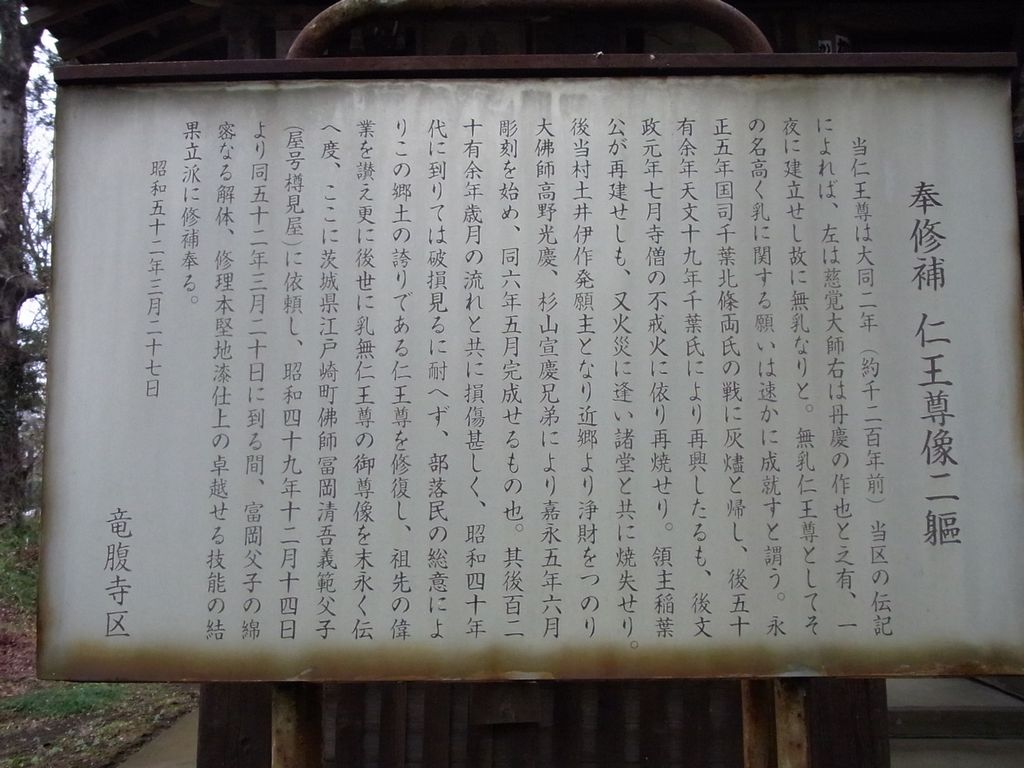 奉修補 仁王尊像二軀
当仁王尊は大同二年（約千二百年前）当区の伝記
によれば、左は慈覚大師右は丹慶の作也と之有、一
夜に建立せし故に無乳なりと。無乳仁王尊としてそ
の名高く乳に関する願いは速かに成就すと謂う。永
正五年国司千葉北條両氏の戦に灰燼と帰し、後五十
有余年天文十九年千葉氏により再興したるも、後文
政元年七月寺僧の不戒火に依り再焼せり。領主稲葉
公が再建せしも、又火災に逢い諸堂と共に焼失せり。
後当村土井伊作発願主となり近郷より浄財をつのり
大佛師高野光慶、杉山宣慶兄弟により嘉永五年六月
彫刻を始め、同六年五月完成せるもの也。其後百二
十有余年歳月の流れと共に損傷甚しく、昭和四十年
代に到りては破損見るに耐へず、部落民の総意によ
りこの郷土の誇りである仁王尊を修復し、祖先の偉
業を讃え更に後世に乳無仁王尊の御尊像を末永く伝
へ度、ここに茨城県江戸崎町佛師冨岡清吾義範父子
（屋号樽見屋）に依頼し、昭和四十九年十二月十四日
より同五十二年三月二十日に到る間、富岡父子の綿
密なる解体、修理本堅地漆仕上の卓越せる技能の結
果立派に修補奉る。
昭和五十二年三月二十七日
竜腹寺区